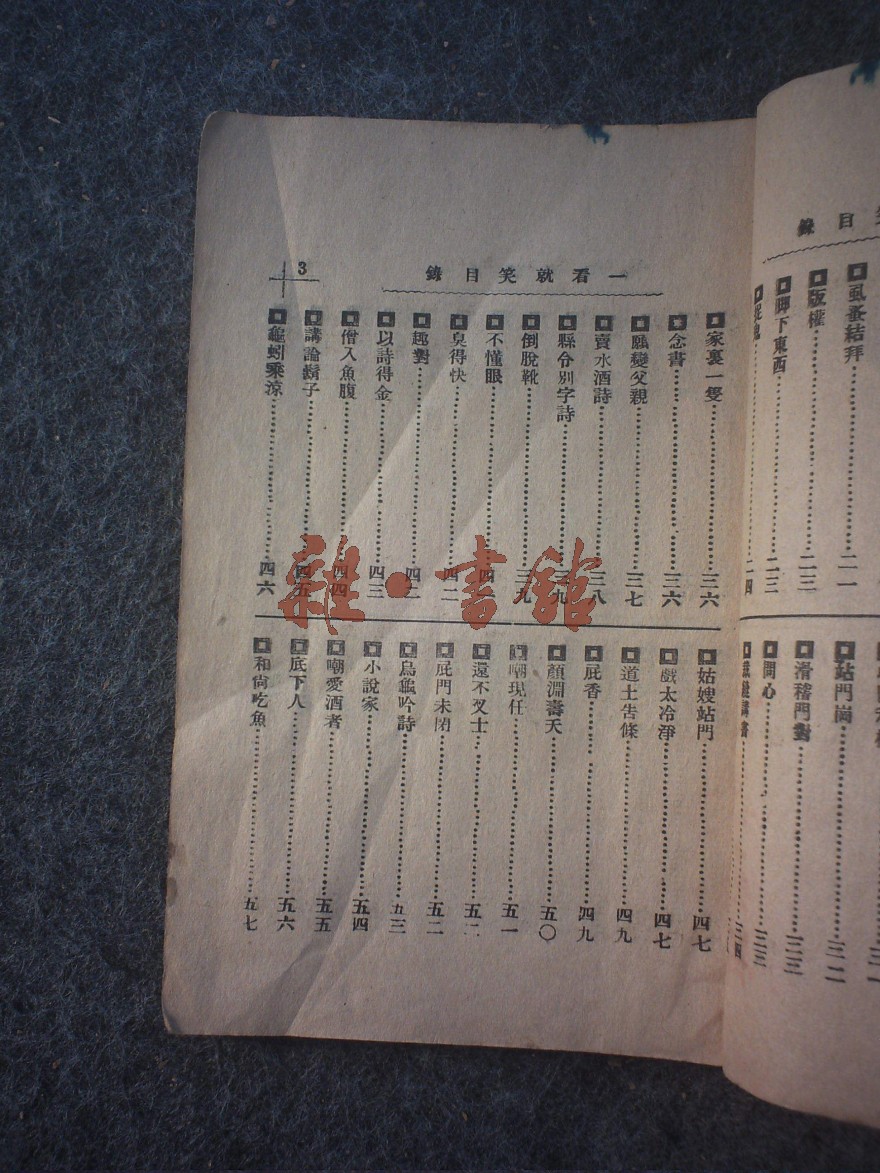 目錄
虱蚤結拜……二一
版權……二三
脚下東西……二三
捉鬼……二四
站門崗……三二
滑稽門對……三三
問心……三三
一看就笑目錄
3
家裏一隻……三六
念書……三六
鵬變父親……三七
賣水酒詩……三八
縣令別字詩……三九
倒脫靴……三九
不懂眼……四一
臭得快……四二
趣對……四二
以詩得金……四三
僧入魚腹……四四
講論鬍子……四五
龜蚓乘涼……四六
姑嫂站門……四七
戲太冷淨……四七
道士告條……四九
屁香……四九
顏淵壽夭……五〇
嘲現任……五一
還不叉士……五二
屁門未閉……五二
烏龜吟詩……五三
小說家……五四
嘲愛酒者……五五
底下人……五六
和尙吃魚……五七
雜·書館